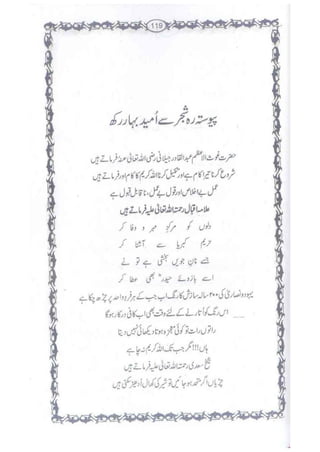 119
پیوستہ رہ شجر سے اُمید بہار رکھ
حضرت غوث الاعظم عبدالقادر جیلانی رضی اللہ تعالیٰ عنہ فرماتے ہیں
شروع کرنا تیرا کام ہے اور تکمیل کرنا اللہ کریم کا کام اور فرماتے ہیں
عمل بے اخلاص اور قول بے عمل، نا قابل قبول ہے
علامہ اقبال رحمتہ اللہ تعالیٰ علیہ فرماتے ہیں
دلوں کو مرکز مہر و وفا کر
حریم کبریا سے آشنا کر
جسے نان جویں بخشی ہے تو نے
اسے بازوئے حیدر بھی عطا کر
یہود و نصاریٰ کی ۲۰۰ سالہ سازش کا رنگ اب جب کے ہر فرد واحد پر چڑھ چکا ہے
اس رنگ کو اُتارنے کے لئے وقت بھی اب کافی درکار ہوگا
راتوں رات تو کوئی معجزہ ہوتا دیکھائی نہیں دیتا
ہاں !!! مگر جب تک اللہ کریم نہ چاہے
شیخ سعدی رحمتہ اللہ تعالیٰ علیہ فرماتے ہیں
چڑیاں اگر متحد ہو جائیں تو شیر کی کھال اُدھیڑ سکتی ہیں